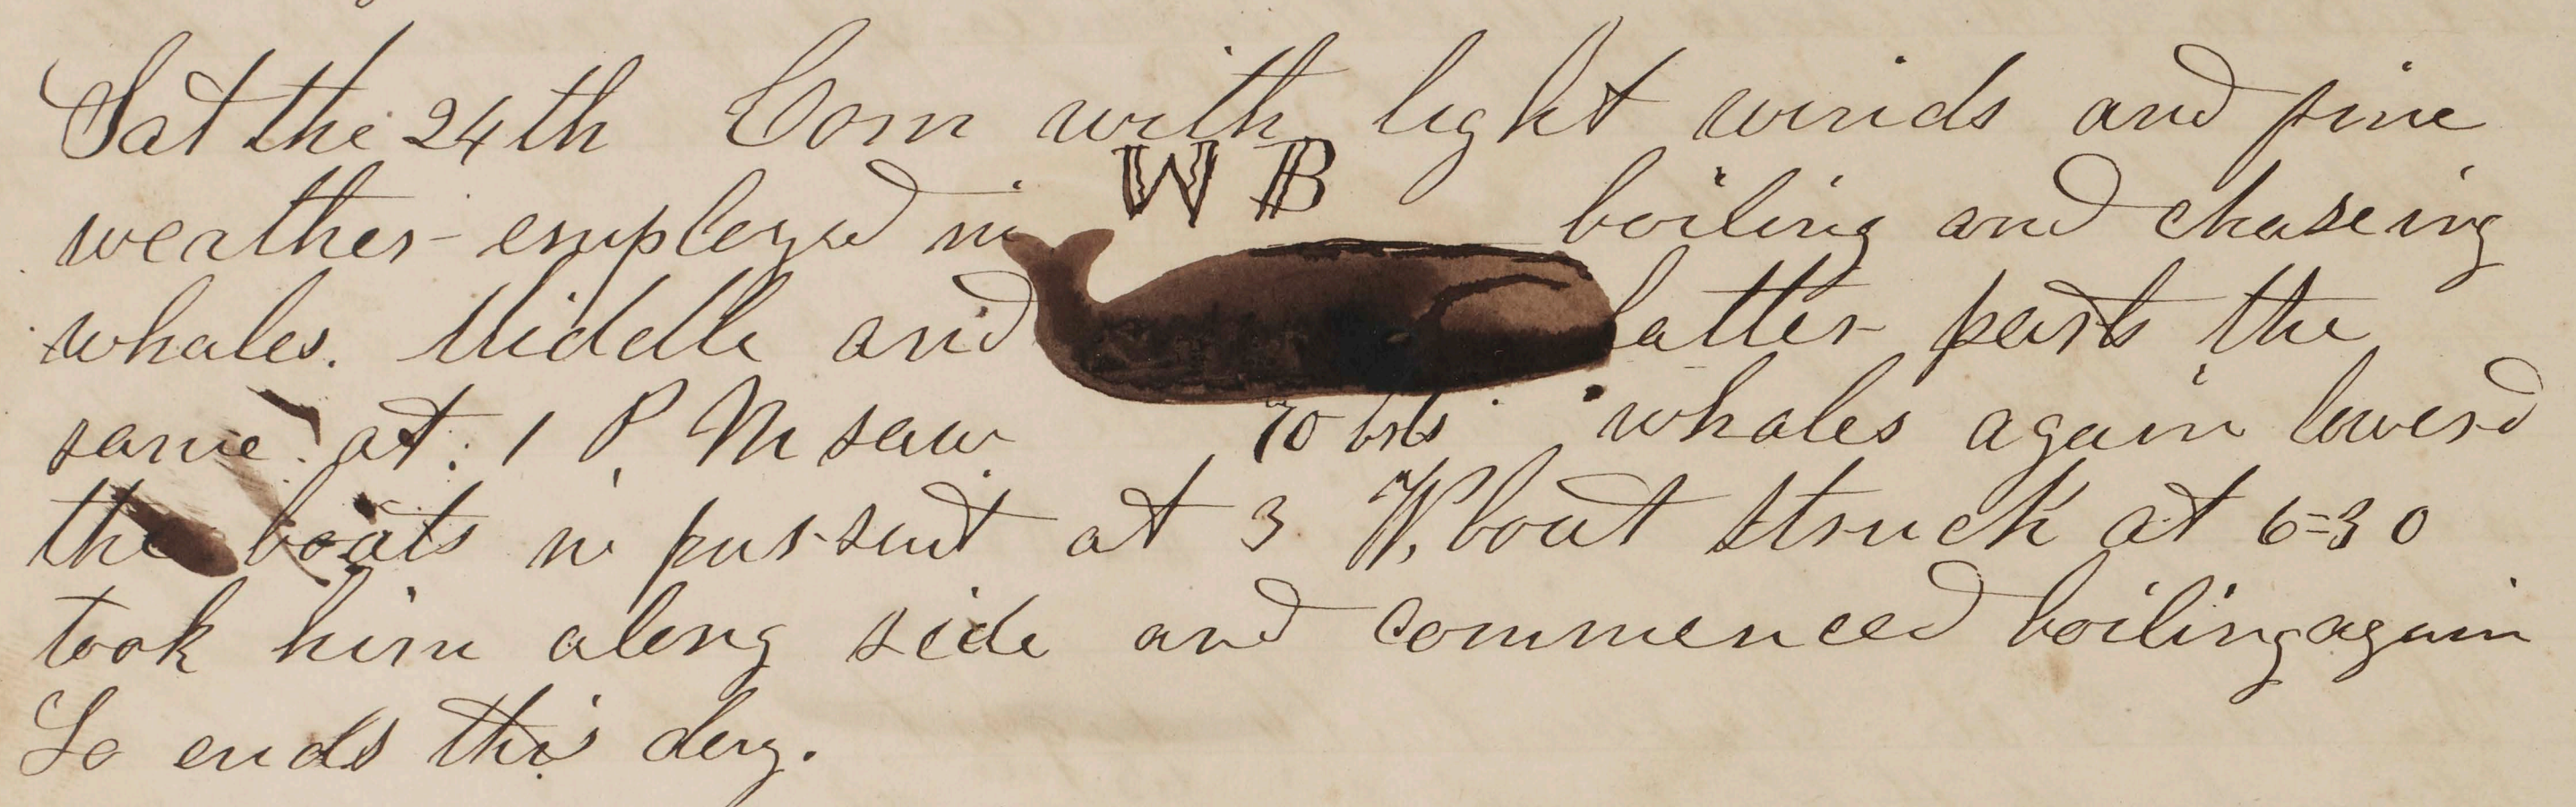 Sat the 24th Com with light winds and fine
W B
weather employed in boiling and chaseing
whales. Middle and latter parts the
same at 1 P M saw 70 bbls whales again lowerd
the boats in pursuit at 3 W. boat struck at 6=30
took him along side and commenced boiling again
So ends this day.